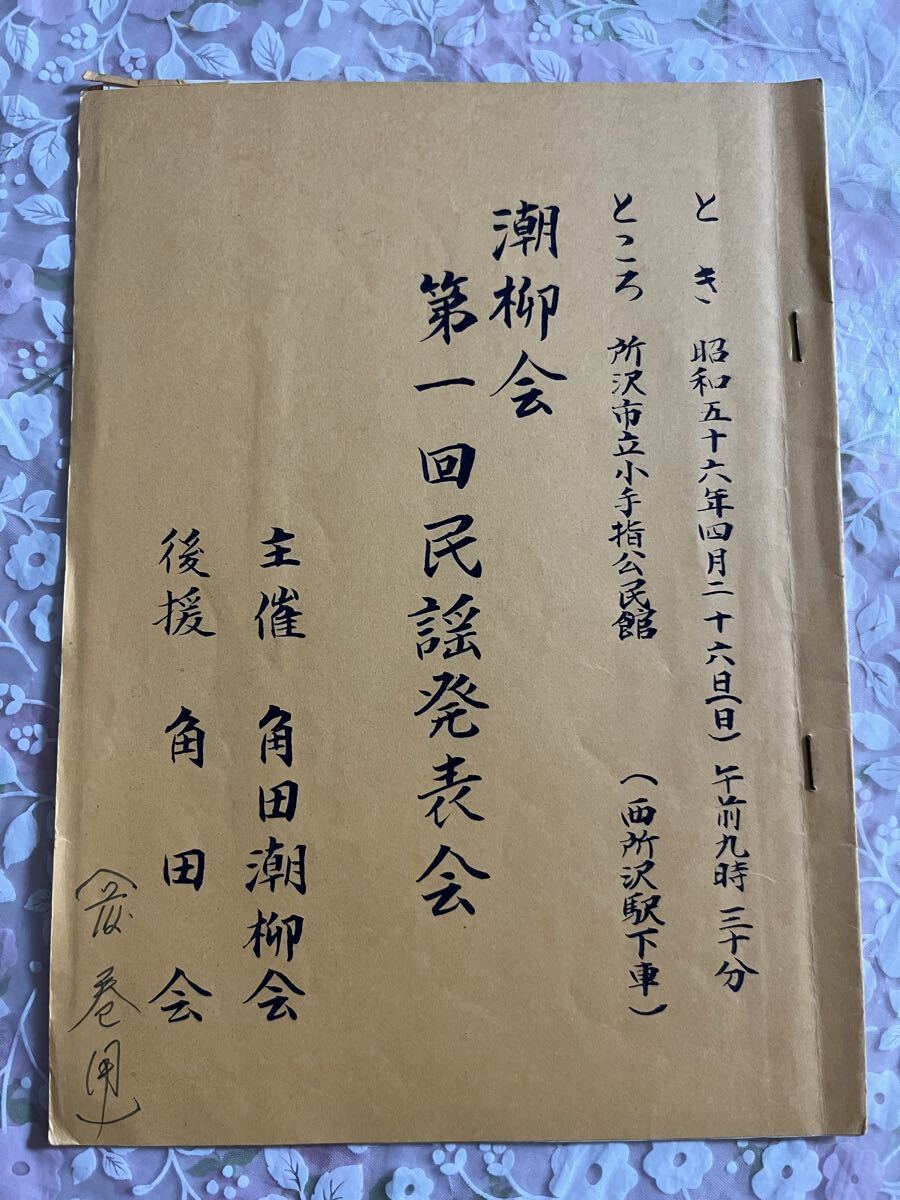 とき 昭和五十六年四月二十六日(日) 午前九時三十分
ところ 所沢市立小手指公民館 (西所沢駅下車)
潮柳会
第一回民謡発表会
主催 角田潮柳会
後援 角田会